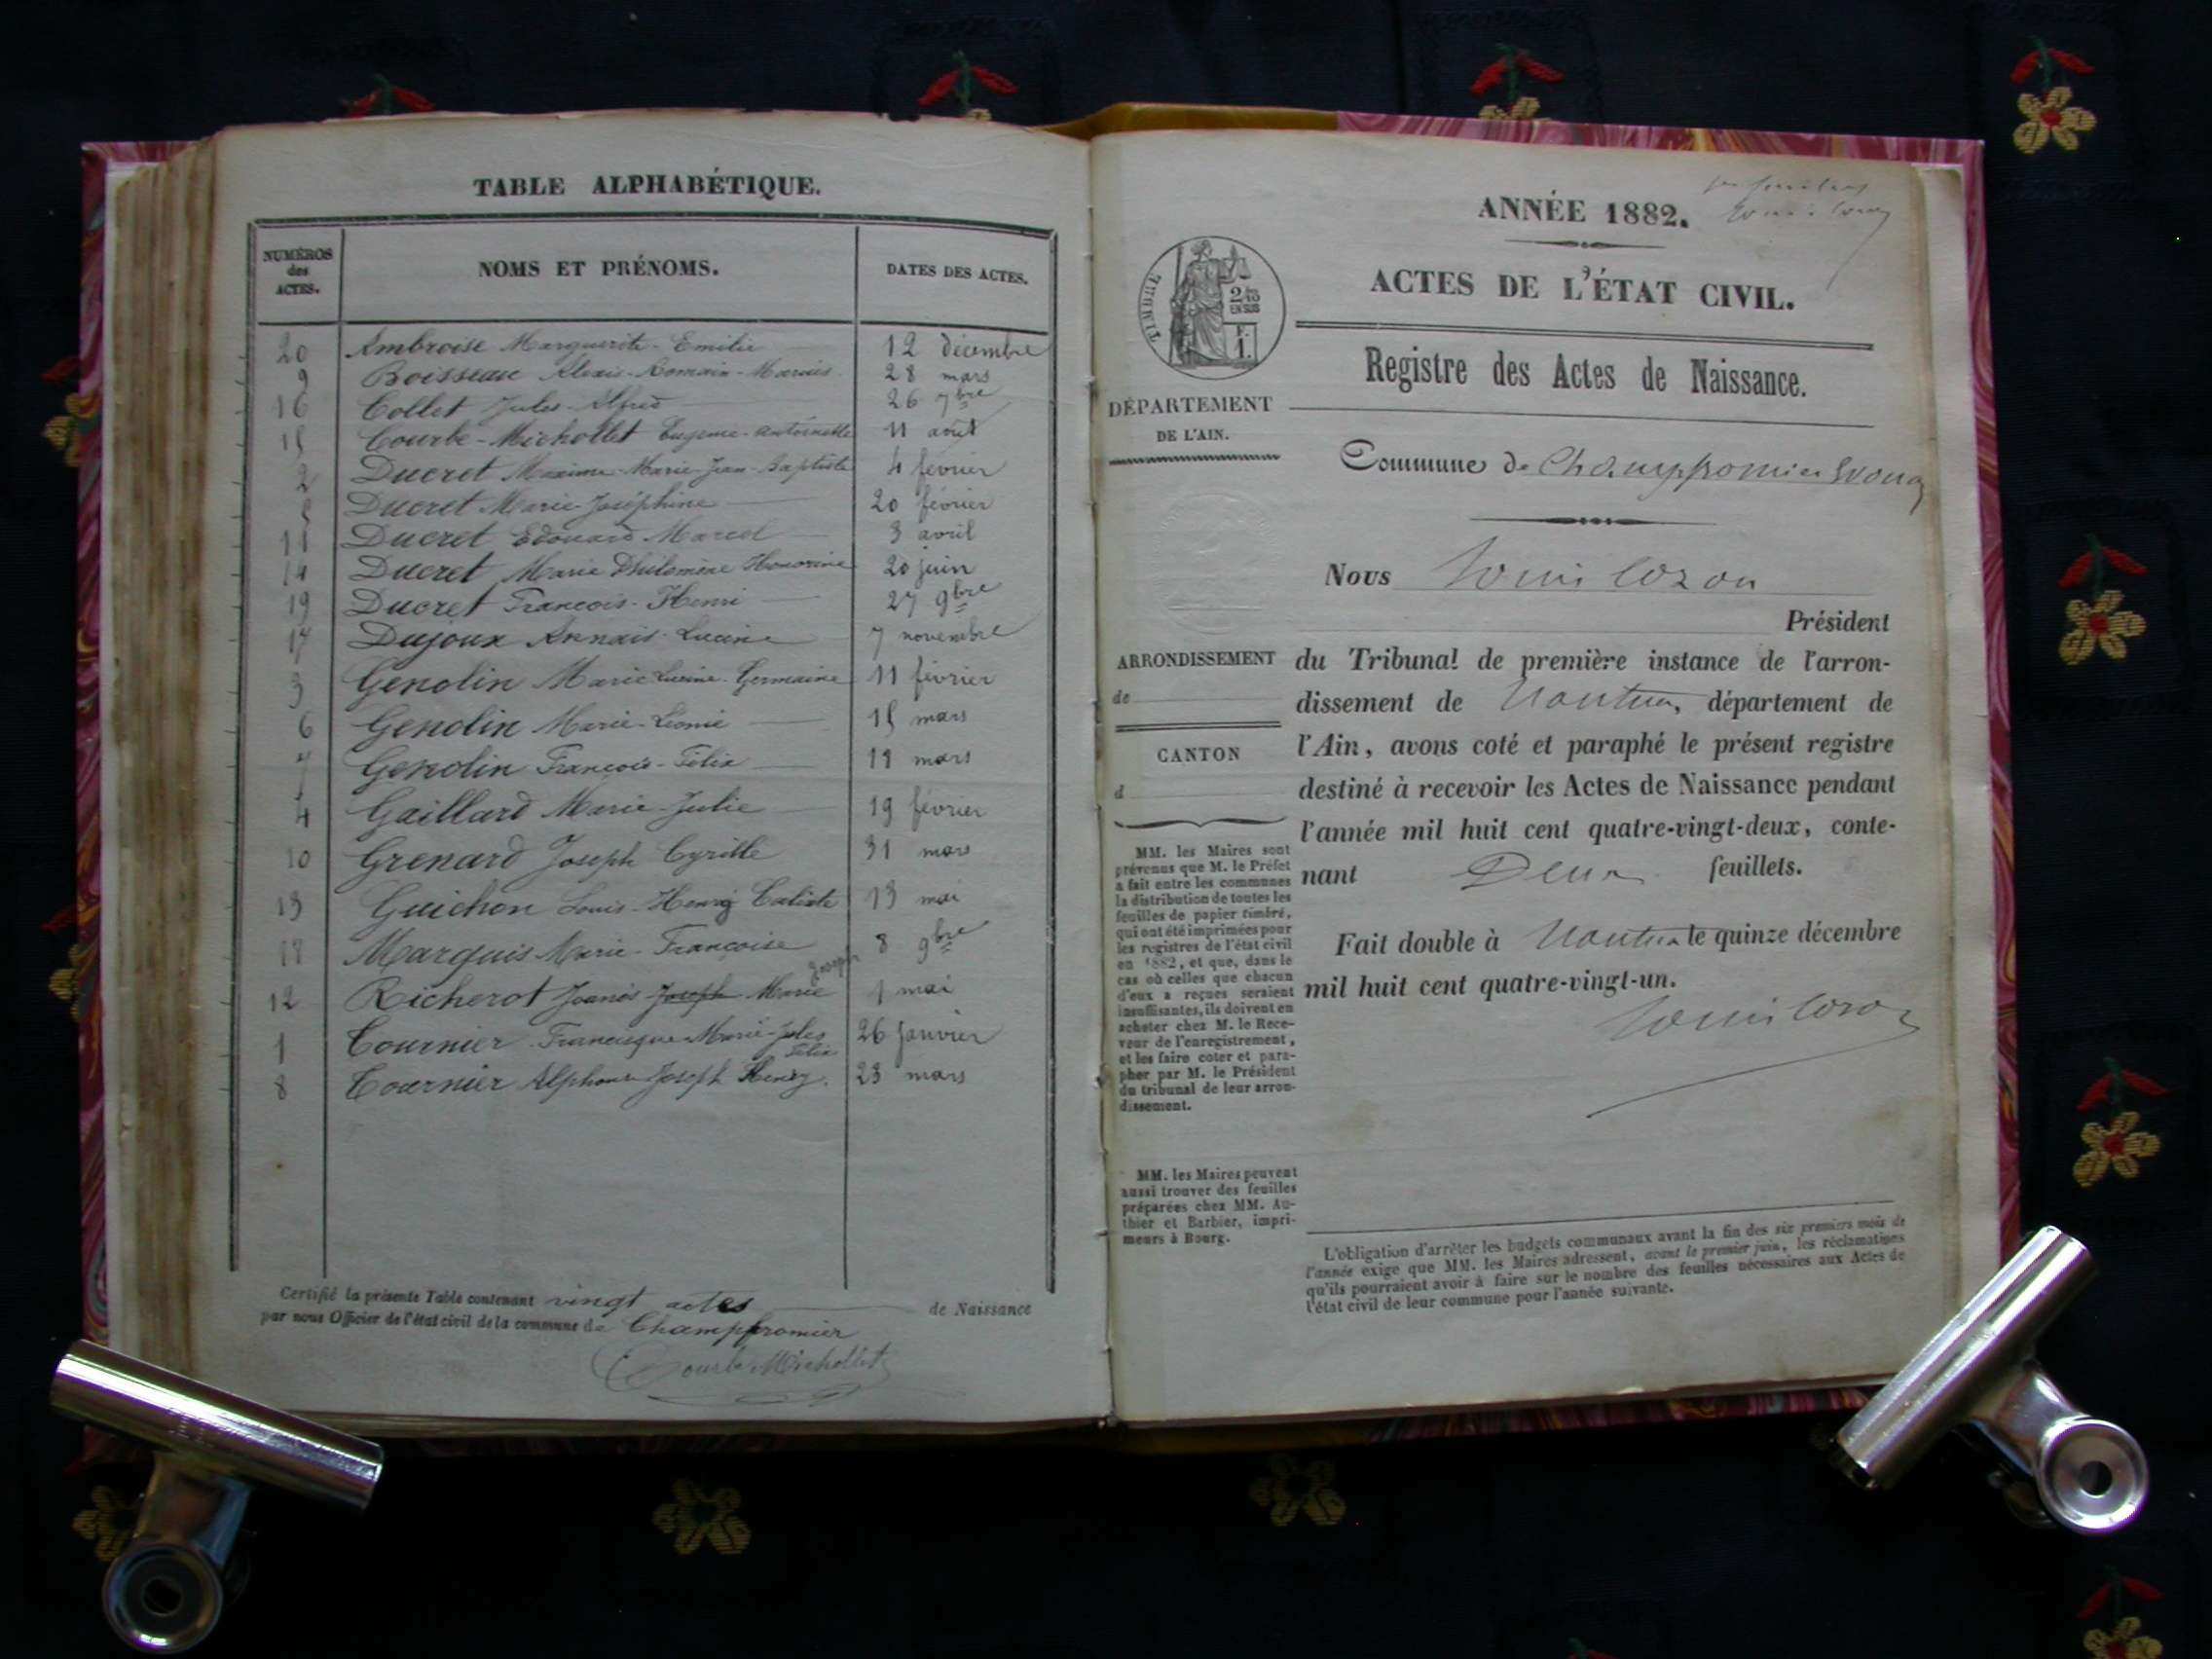 TABLE ALPHABÉTIQUE.
NUMÉROS des ACTES. NOMS ET PRÉNOMS. DATES DES ACTES.
20 Ambroise Marguerite-Emilie 12 décembre
9 Boisseau Alexis-Romain-Marius 28 mars
16 Collet Jules-Alfred 26 7bre
15 Courbe-Michollet Eugenie-Antoinette 11 août
2 Ducret Maxime-Marie-Jean-Baptiste 4 février
5 Ducret Marie-Joséphine 20 février
11 Ducret Edouard Marcel 3 avril
14 Ducret Marie Philomène Honorine 20 juin
19 Ducret François-Henri 27 9bre
17 Dujoux Annais-Lucine 7 novembre
3 Genolin Marie Lucine-Germaine 11 février
6 Genolin Marie-Leonie 15 mars
7 Genolin François-Félix 18 mars
4 Gaillard Marie-Julie 19 février
10 Grenard Joseph Cyrille 31 mars
13 Guichon Louis-Henry Calixte 13 mai
18 Marquis Marie-Françoise 8 9bre
12 Richerot Joanès Joseph Marie Joseph 1 mai
1 Tournier Francisque-Marie-Jules Félix 26 janvier
8 Tournier Alphonse Joseph Henry. 23 mars
Certifié la présente Table contenant vingt actes de Naissance
par nous Officier de l'état civil de la commune de Champfromier
Courbe Michollet
ANNÉE 1882.
ACTES DE L'ÉTAT CIVIL.
Registre des Actes de Naissance.
TIMBRE
2/10 EN SUS
F. 1.
DÉPARTEMENT
DE L'AIN.
Commune de Champfromier
Nous
Président
ARRONDISSEMENT
de
CANTON
d
du Tribunal de première instance de l'arron-
dissement de Nantua, département de
l'Ain, avons coté et paraphé le présent registre
destiné à recevoir les Actes de Naissance pendant
l'année mil huit cent quatre-vingt-deux, conte-
nant Deux feuillets.
Fait double à Nantua le quinze décembre
mil huit cent quatre-vingt-un.
MM. les Maires sont
prévenus que M. le Préfet
a fait entre les communes
la distribution de toutes les
feuilles de papier timbré,
qui ont été imprimées pour
les registres de l'état civil
en 1882, et que, dans le
cas où celles que chacun
d'eux a reçues seraient
insuffisantes, ils doivent en
acheter chez M. le Rece-
veur de l'enregistrement,
et les faire coter et para-
pher par M. le Président
du tribunal de leur arron-
dissement.
MM. les Maires peuvent
aussi trouver des feuilles
préparées chez MM. Au-
thier et Barbier, impri-
meurs à Bourg.
L'obligation d'arrêter les budgets communaux avant la fin des six premiers mois de
l'année exige que MM. les Maires adressent, avant le premier juin, les réclamations
qu'ils pourraient avoir à faire sur le nombre des feuilles nécessaires aux Actes de
l'état civil de leur commune pour l'année suivante.